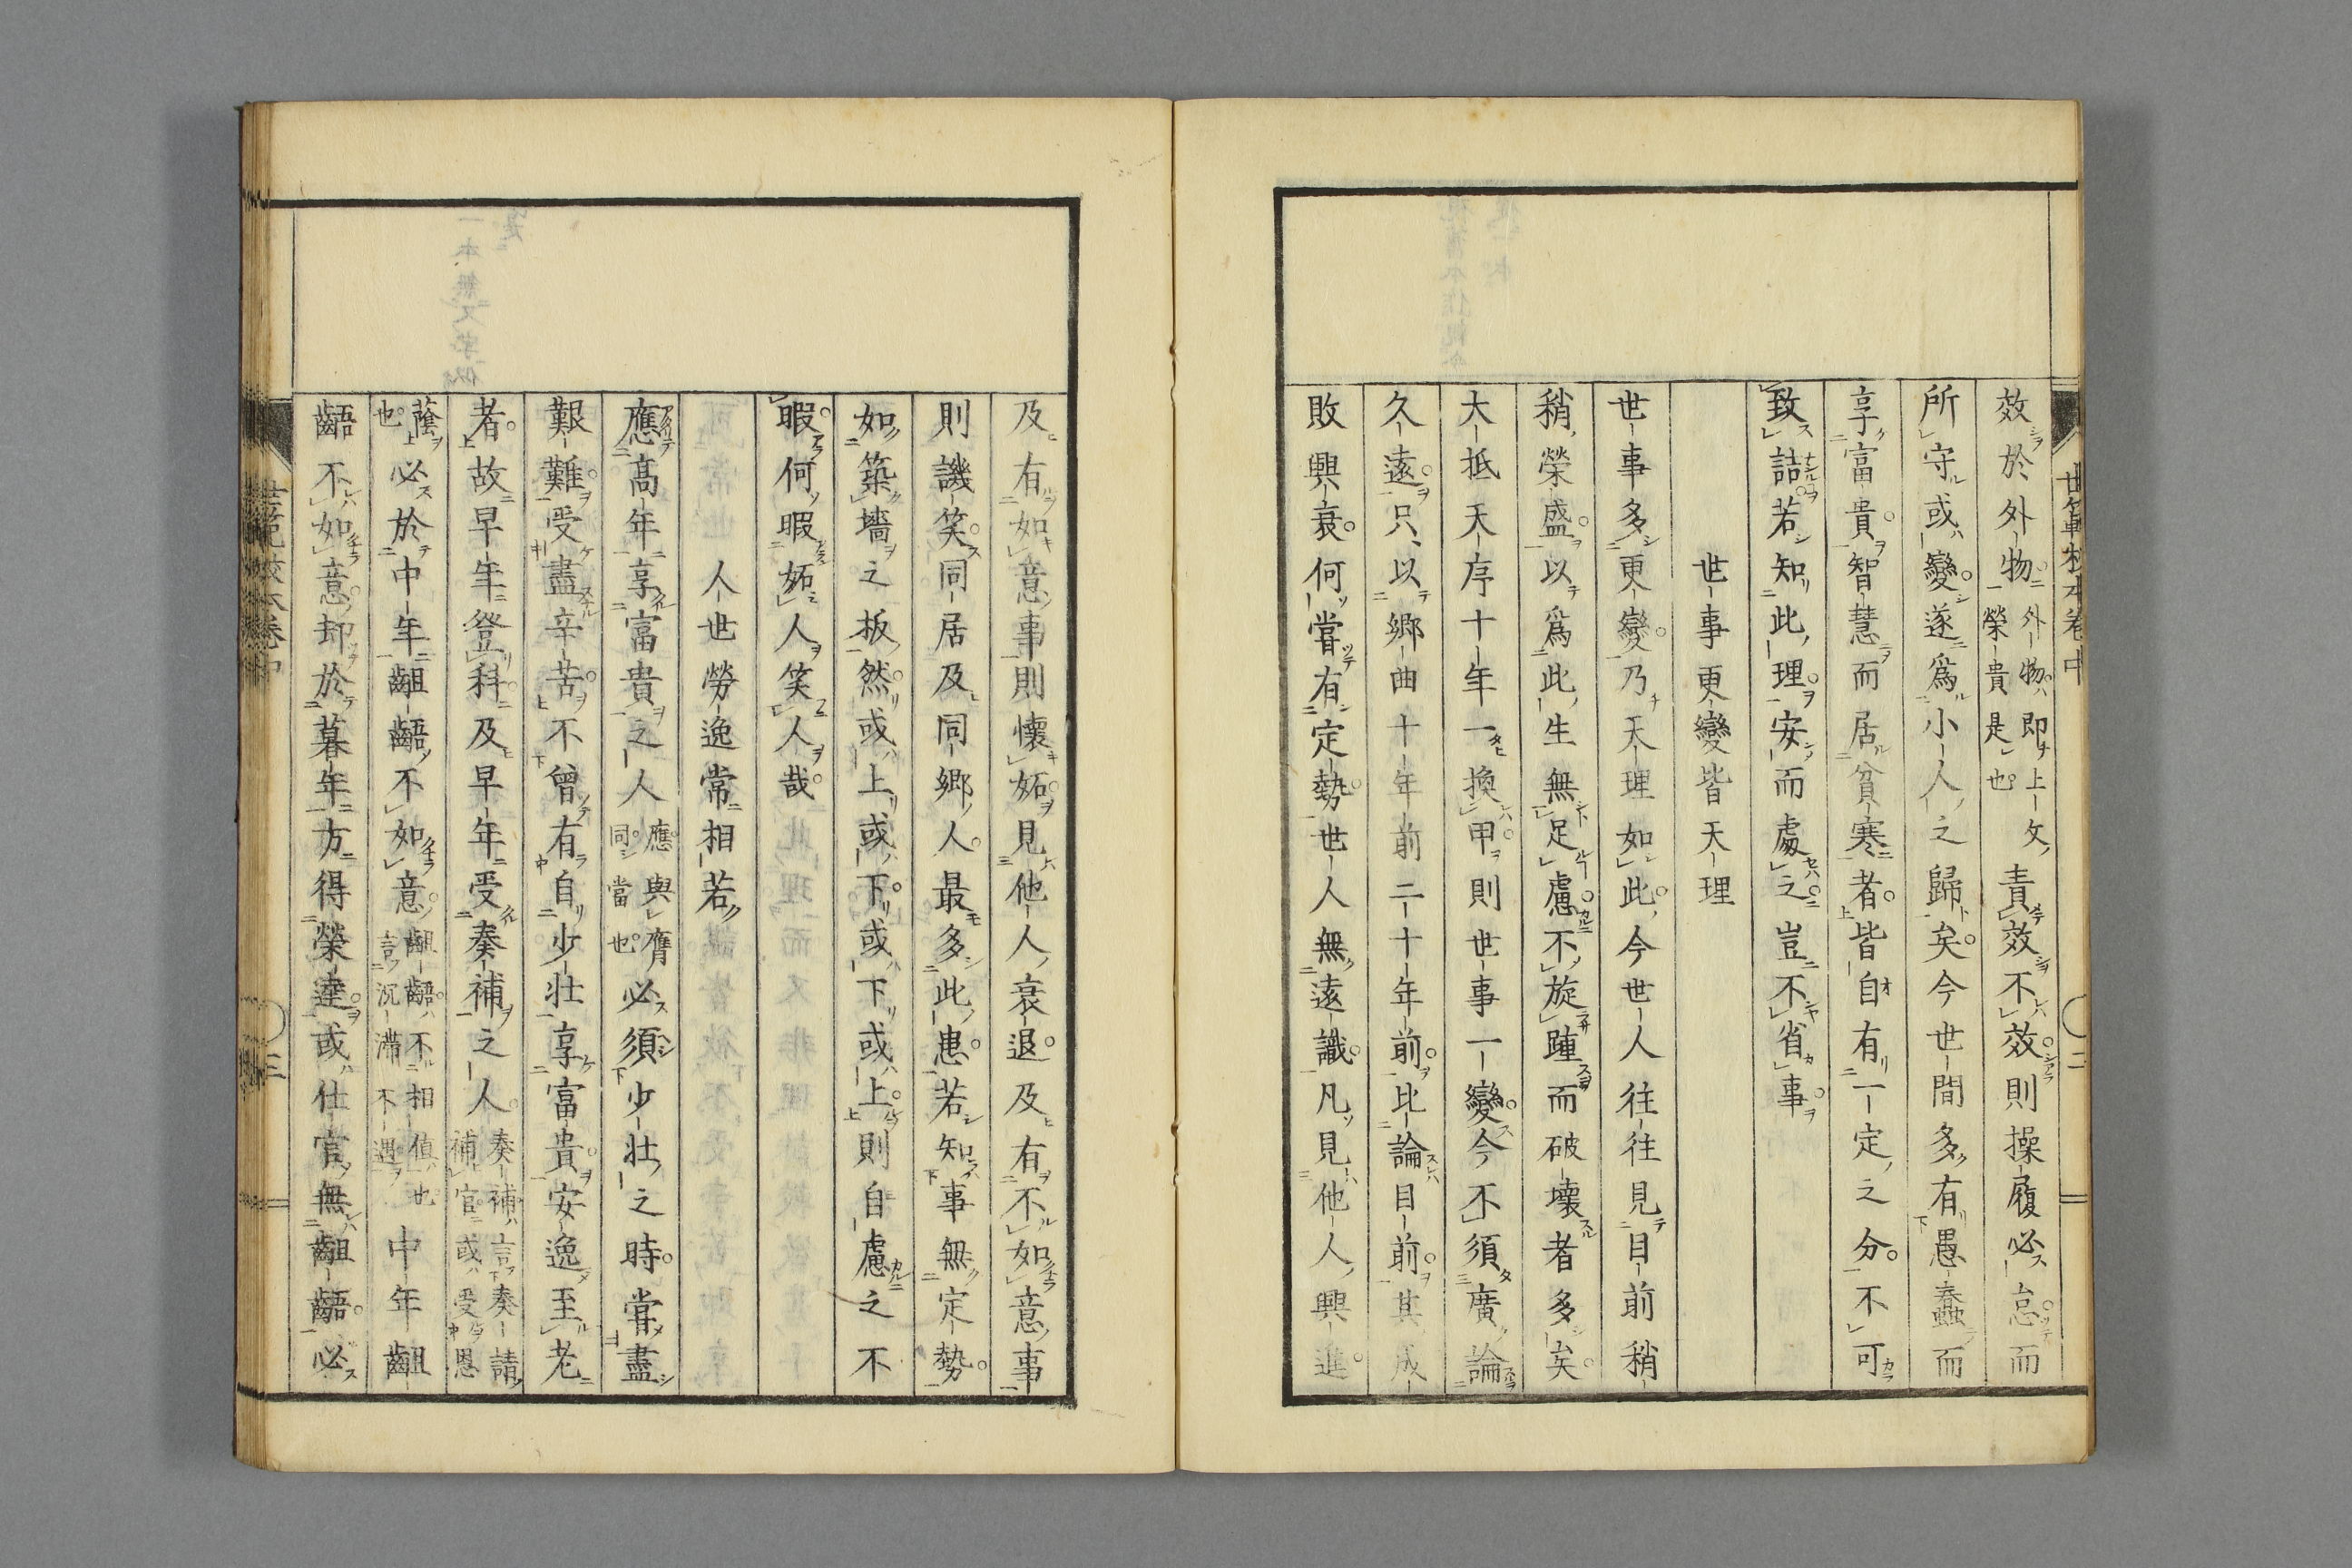 效於外物外物即上文榮貴是也責效不效則操履必怠而
所守或變遂爲小人之歸矣今世間多有愚蠢而
享富貴智慧而居貧寒者皆自有一定之分不可
致詰若知此理安而處之豈不省事
世事更變皆天理
世事多更變乃天理如此今世人往往見目前稍
稍榮盛以爲此生無足慮不旋踵而破壞者多矣
大抵天序十年一換甲則世事一變今不須廣論
久遠只以鄉曲十年前二十年前比論目前其成
敗興衰何嘗有定勢世人無遠識凡見他人興進
及有如意事則懷妬見他人衰退及有不如意事
則譏笑同居及同鄉人最多此患若知事無定勢
如築墻之板然或上或下或下或上則自慮之不
暇何暇妬人笑人哉
人世勞逸常相若
應高年享富貴之人應與膺同當也必須少壯之時嘗盡
艱難受盡辛苦不曾有自少壯享富貴安逸至老
者故早年登科及早年受奏補之人奏補言奏請補官或受恩
蔭也必於中年齟齬不如意齟齬不相値也言沉滞不遇中年齟
齬不如意却於暮年方得榮達或仕官無齟齬必
世範校本卷中
二
世範校本卷中
三